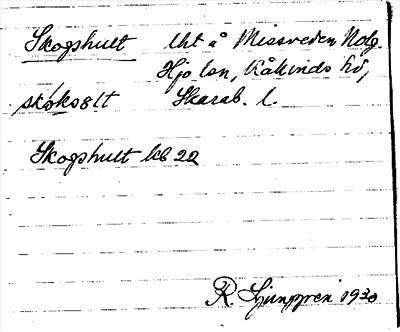 Skogshult lht å Missveden Nolg.
Hjo lsn, Kåkinds hd,
skóksɷlt Skarab. l.
Skogshult kb 22
R. Ljunggren 1930